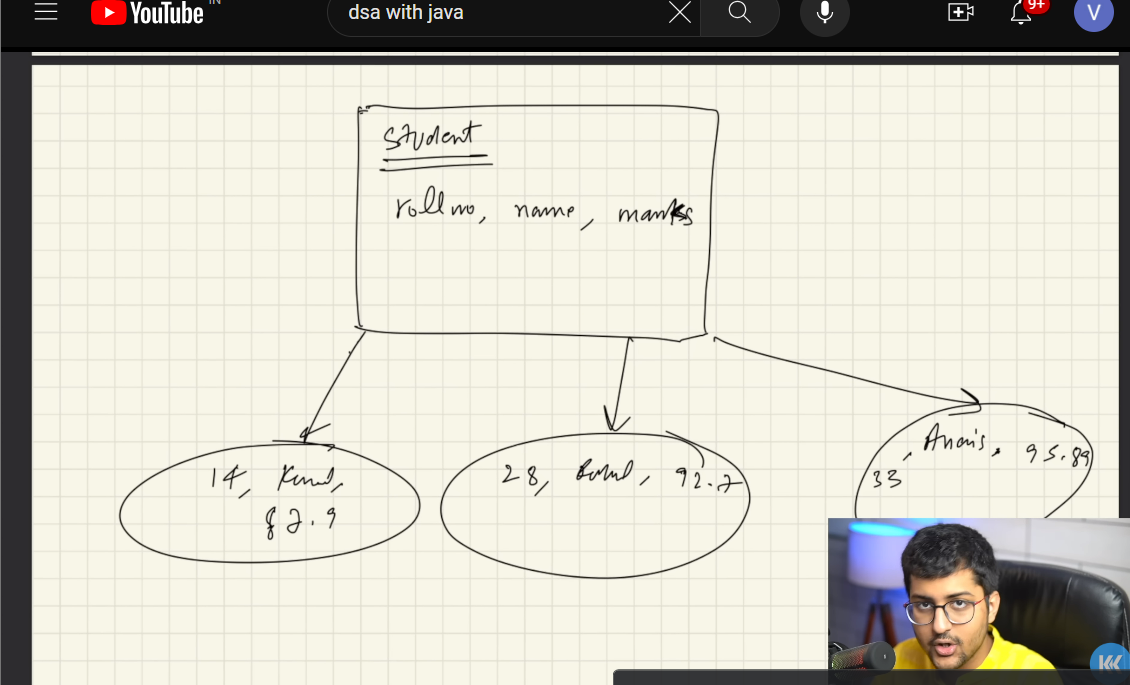 YouTube IN
dsa with java
9+
V
Student
roll no, name, marks
14, Kunal,
87.9
28, Rahul, 92.7
33, Anais, 95.89